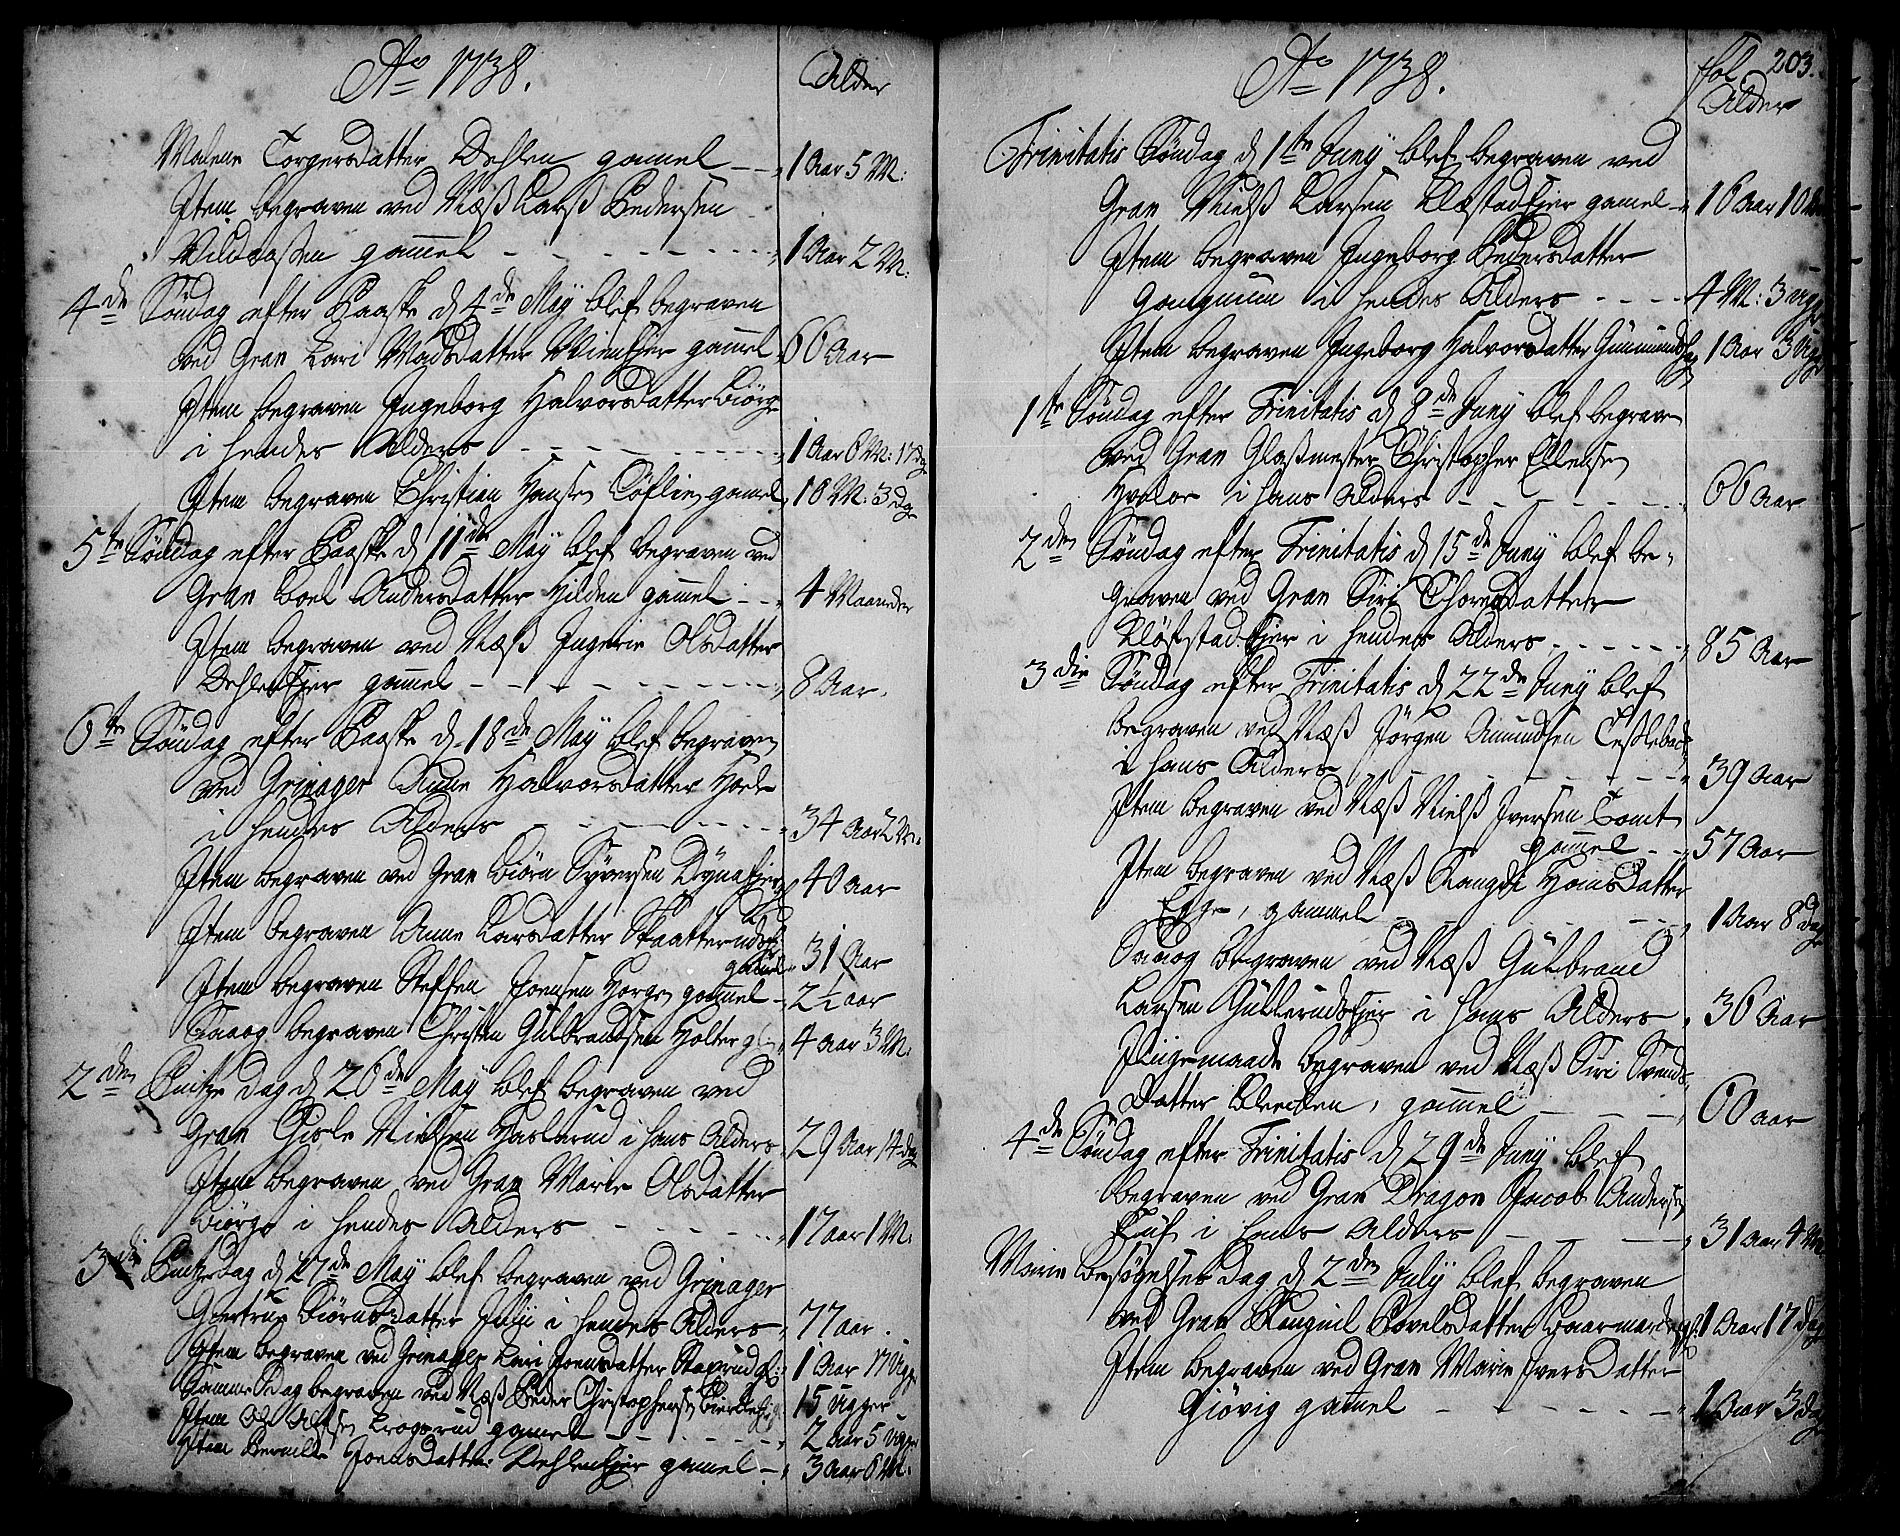 Ao 1738.
Alder
Malene Torgersdatter Dehlen gamel — 1 Aar 5 M:
Item begraven ved Næss Lars Pedersen
gamel — 1 Aar 2 M:
4de Søndag efter Paaske d 4de Maÿ blef begraven
ved Gran Kari Madsdatter gamel 66 Aar
Item begraven Ingeborg Halvorsdatter Biørge
i hendes Alders — 1 Aar 6 M: 17 dg
Item begraven Christian Hansen gamel 10 M: 3 dg
5te Søndag efter Paaske d 11de Maÿ blef begraven ved
Gran Boel Andersdatter Hilden gamel — 4 Maaneder
Item begraven ved Næss Ingerie Olsdatter
Dehlen Eier gamel — 8 Aar.
6te Søndag efter Paaske d. 18de Maÿ blef begraven
ved Grinager Anne Halvorsdatter
i hendes Alders — 34 Aar 2 M:
Item begraven ved Gran Biørn Syversen 40 Aar
Item begraven Anne Larsdatter
gamel 31 Aar
Item begraven Steffen Joensen Horgen gamel — 2½ aar
Saaog begraven Christen Gulbrandsen Holter gl: 4 aar 3 M:
2den Pintze dag d 26de Maÿ blef begraven ved
Gran Gisle Nielsen Haslerud i hans Alders 29 Aar 14 dg
Item begraven ved Gran Marie Olsdatter
Biørge i hendes Alders — 17 aar 1 M:
3die Pintzedag d 27de Maÿ blef begraven ved Grinager
Giertrue Biørnsdatter i hendes Alders 77 aar.
Item begraven ved Grinager Kari Joensdatter gl: 1 Aar 17 Ugger
Samme Dag begraven ved Næss Peder Christophersen 15 Ugger
Item Ole Olsen gamel — 2 aar 5 Ugger
Item Pernille Joensdatter Dehlen Eier gamel — 3 Aar 6 M:
Ao 1738.
Fol 203.
Alder
Trinitatis Søndag d 1te Junÿ blef begraven ved
Gran Niels Larsen Klæstad Eier gamel 16 Aar 10
Item begraven Ingeborg Pedersdatter
i hendes Alders — 4 M: 3 Ugger
Item begraven Ingeborg Halvorsdatter 1 Aar 3 Ugger
1te Søndag efter Trinitatis d 8de Junÿ blef begraven
ved Gran Glassmester Christopher Ellensen
i hans Alders — 66 Aar
2den Søndag efter Trinitatis d 15de Junÿ blef be-
graven ved Gran Siri Thoresdatter
Kløfstad Eier i hendes Alders — 85 Aar
3die Søndag efter Trinitatis d 22de Junÿ blef
begraven ved Næss Jørgen Amundsen
i hans Alders — 39 Aar
Item begraven ved Næss Niels Iversen Tomt
gamel — 57 Aar
Item begraven ved Næss Rangdi Hansdatter
Egge, gammel — 1 Aar 8 dage
Saaog begraven ved Næss Gulbrand
Larsen Gullerud Eier i hans Alders 36 Aar
Iligemaade begraven ved Næss Siri Svends-
datter Bleeken, gammel — 60 aar
4de Søndag efter Trinitatis d 29de Junÿ blef
begraven ved Gran Dragon Jacob Andersen
i hans Alders — 31 aar 4 M
Marie Besøgelses dag d 2den Julÿ blef begraven
ved Gran Ranguil Povelsdatter 1 Aar 17 dage
Item begraven ved Gran Marie Iversdatter
Giøvig gamel — 1 Aar 3 dg